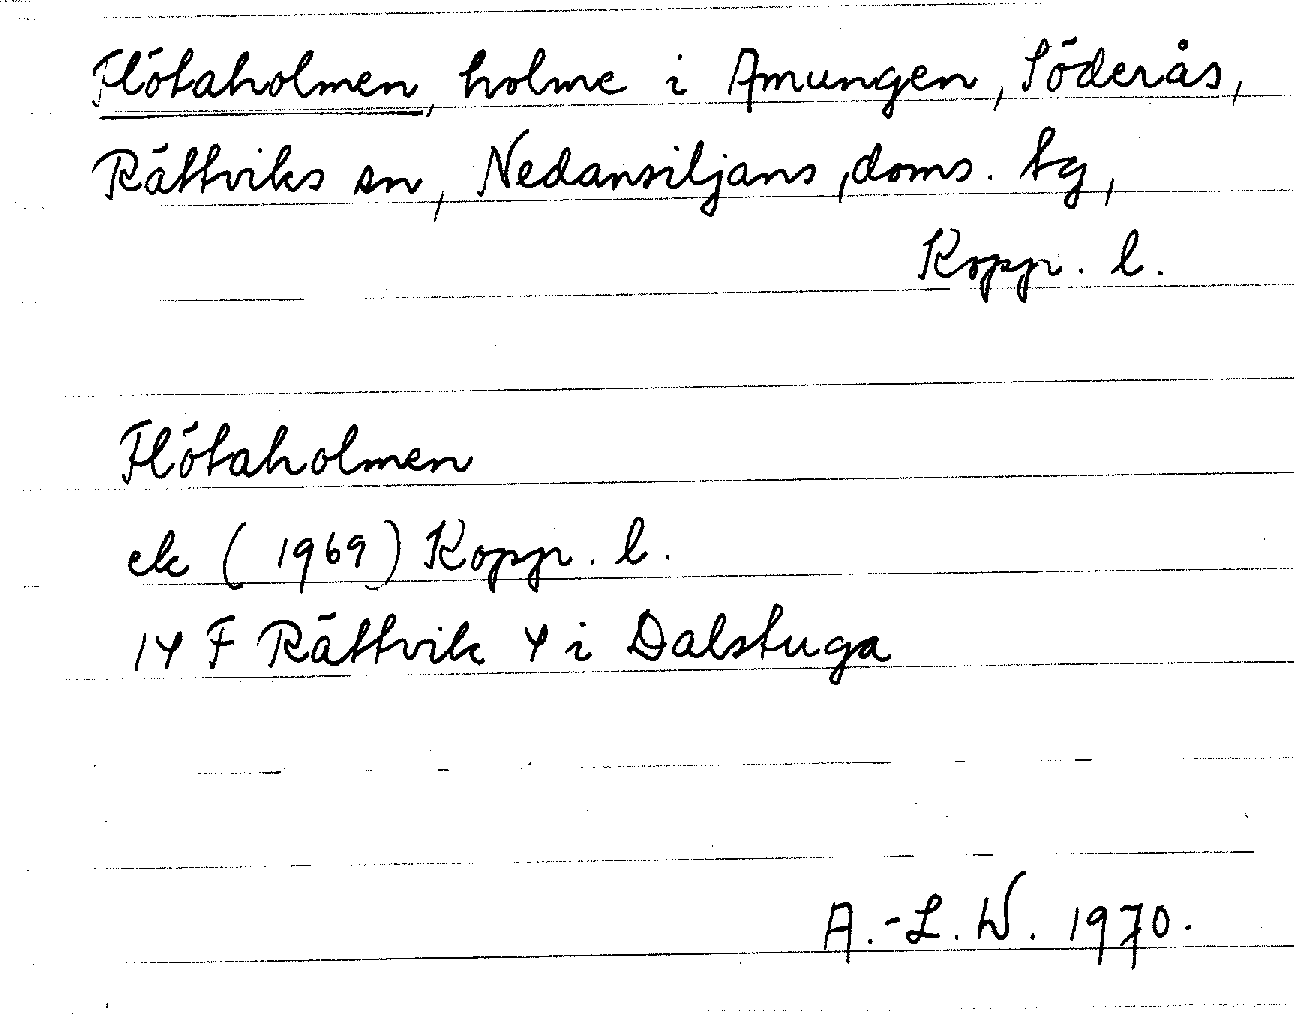 Flötaholmen, holme i Amungen, Söderås,
Rättviks sn, Nedansiljans doms. tg,
Kopp. l.
Flötaholmen
ek (1969) Kopp. l.
14 F Rättvik 4 i Dalstuga
A.-L. W. 1970.